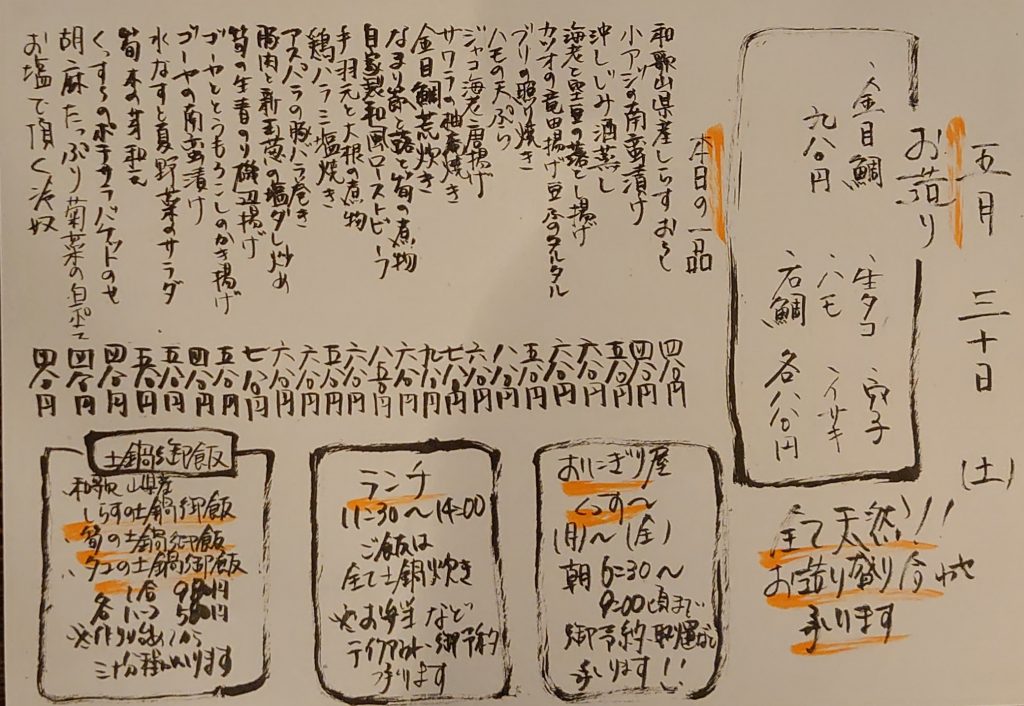 五月 三十日 (土)
お造り
金目鯛
九八〇円
生タコ 穴子
ハモ イサキ
石鯛 各八八〇円
全て天然!!
お造り盛り合わせ
承ります
本日の一品
和歌山県産しらすおろし 四八〇円
小アジの南蛮漬け 四八〇円
沖しじみ酒蒸し 五八〇円
海老と空豆の落とし揚げ 六八〇円
カツオの竜田揚げ豆ふのタルタル 六八〇円
ブリの照り焼き 五八〇円
ハモの天ぷら 八八〇円
ジャコ海老唐揚げ 六八〇円
サワラの柚庵焼き 七八〇円
金目鯛荒炊き 九八〇円
なまり節と蕗と筍の煮物 六八〇円
自家製和風ローストビーフ 八五〇円
手羽元と大根の煮物 六八〇円
鶏ハラミ塩焼き 五八〇円
アスパラの豚バラ巻き 六八〇円
豚肉と新玉葱の塩ダレ炒め 六八〇円
筍の生青のり磯辺揚げ 七八〇円
ゴーヤととうもろこしのかき揚げ 五八〇円
ゴーヤの南蛮漬け 四八〇円
水なすと夏野菜のサラダ 五八〇円
筍木の芽和え 五八〇円
くっすぅのポテサラバケットのせ 四八〇円
胡麻たっぷり菊菜の白和え 四八〇円
お塩で頂く冷奴 四八〇円
おにぎり屋
くっす〜
(月)〜(金)
朝6:30〜
9:00頃まで
御予約取置など
承ります!!
ランチ
11:30〜14:00
ご飯は
全て土鍋炊き
※お弁当など
テイクアウト御予約
承ります
土鍋御飯
和歌山県産
しらすの土鍋御飯
筍の土鍋御飯
タコの土鍋御飯
1合 980円
各 ハーフ 580円
※作り始めから
三十分程かかります